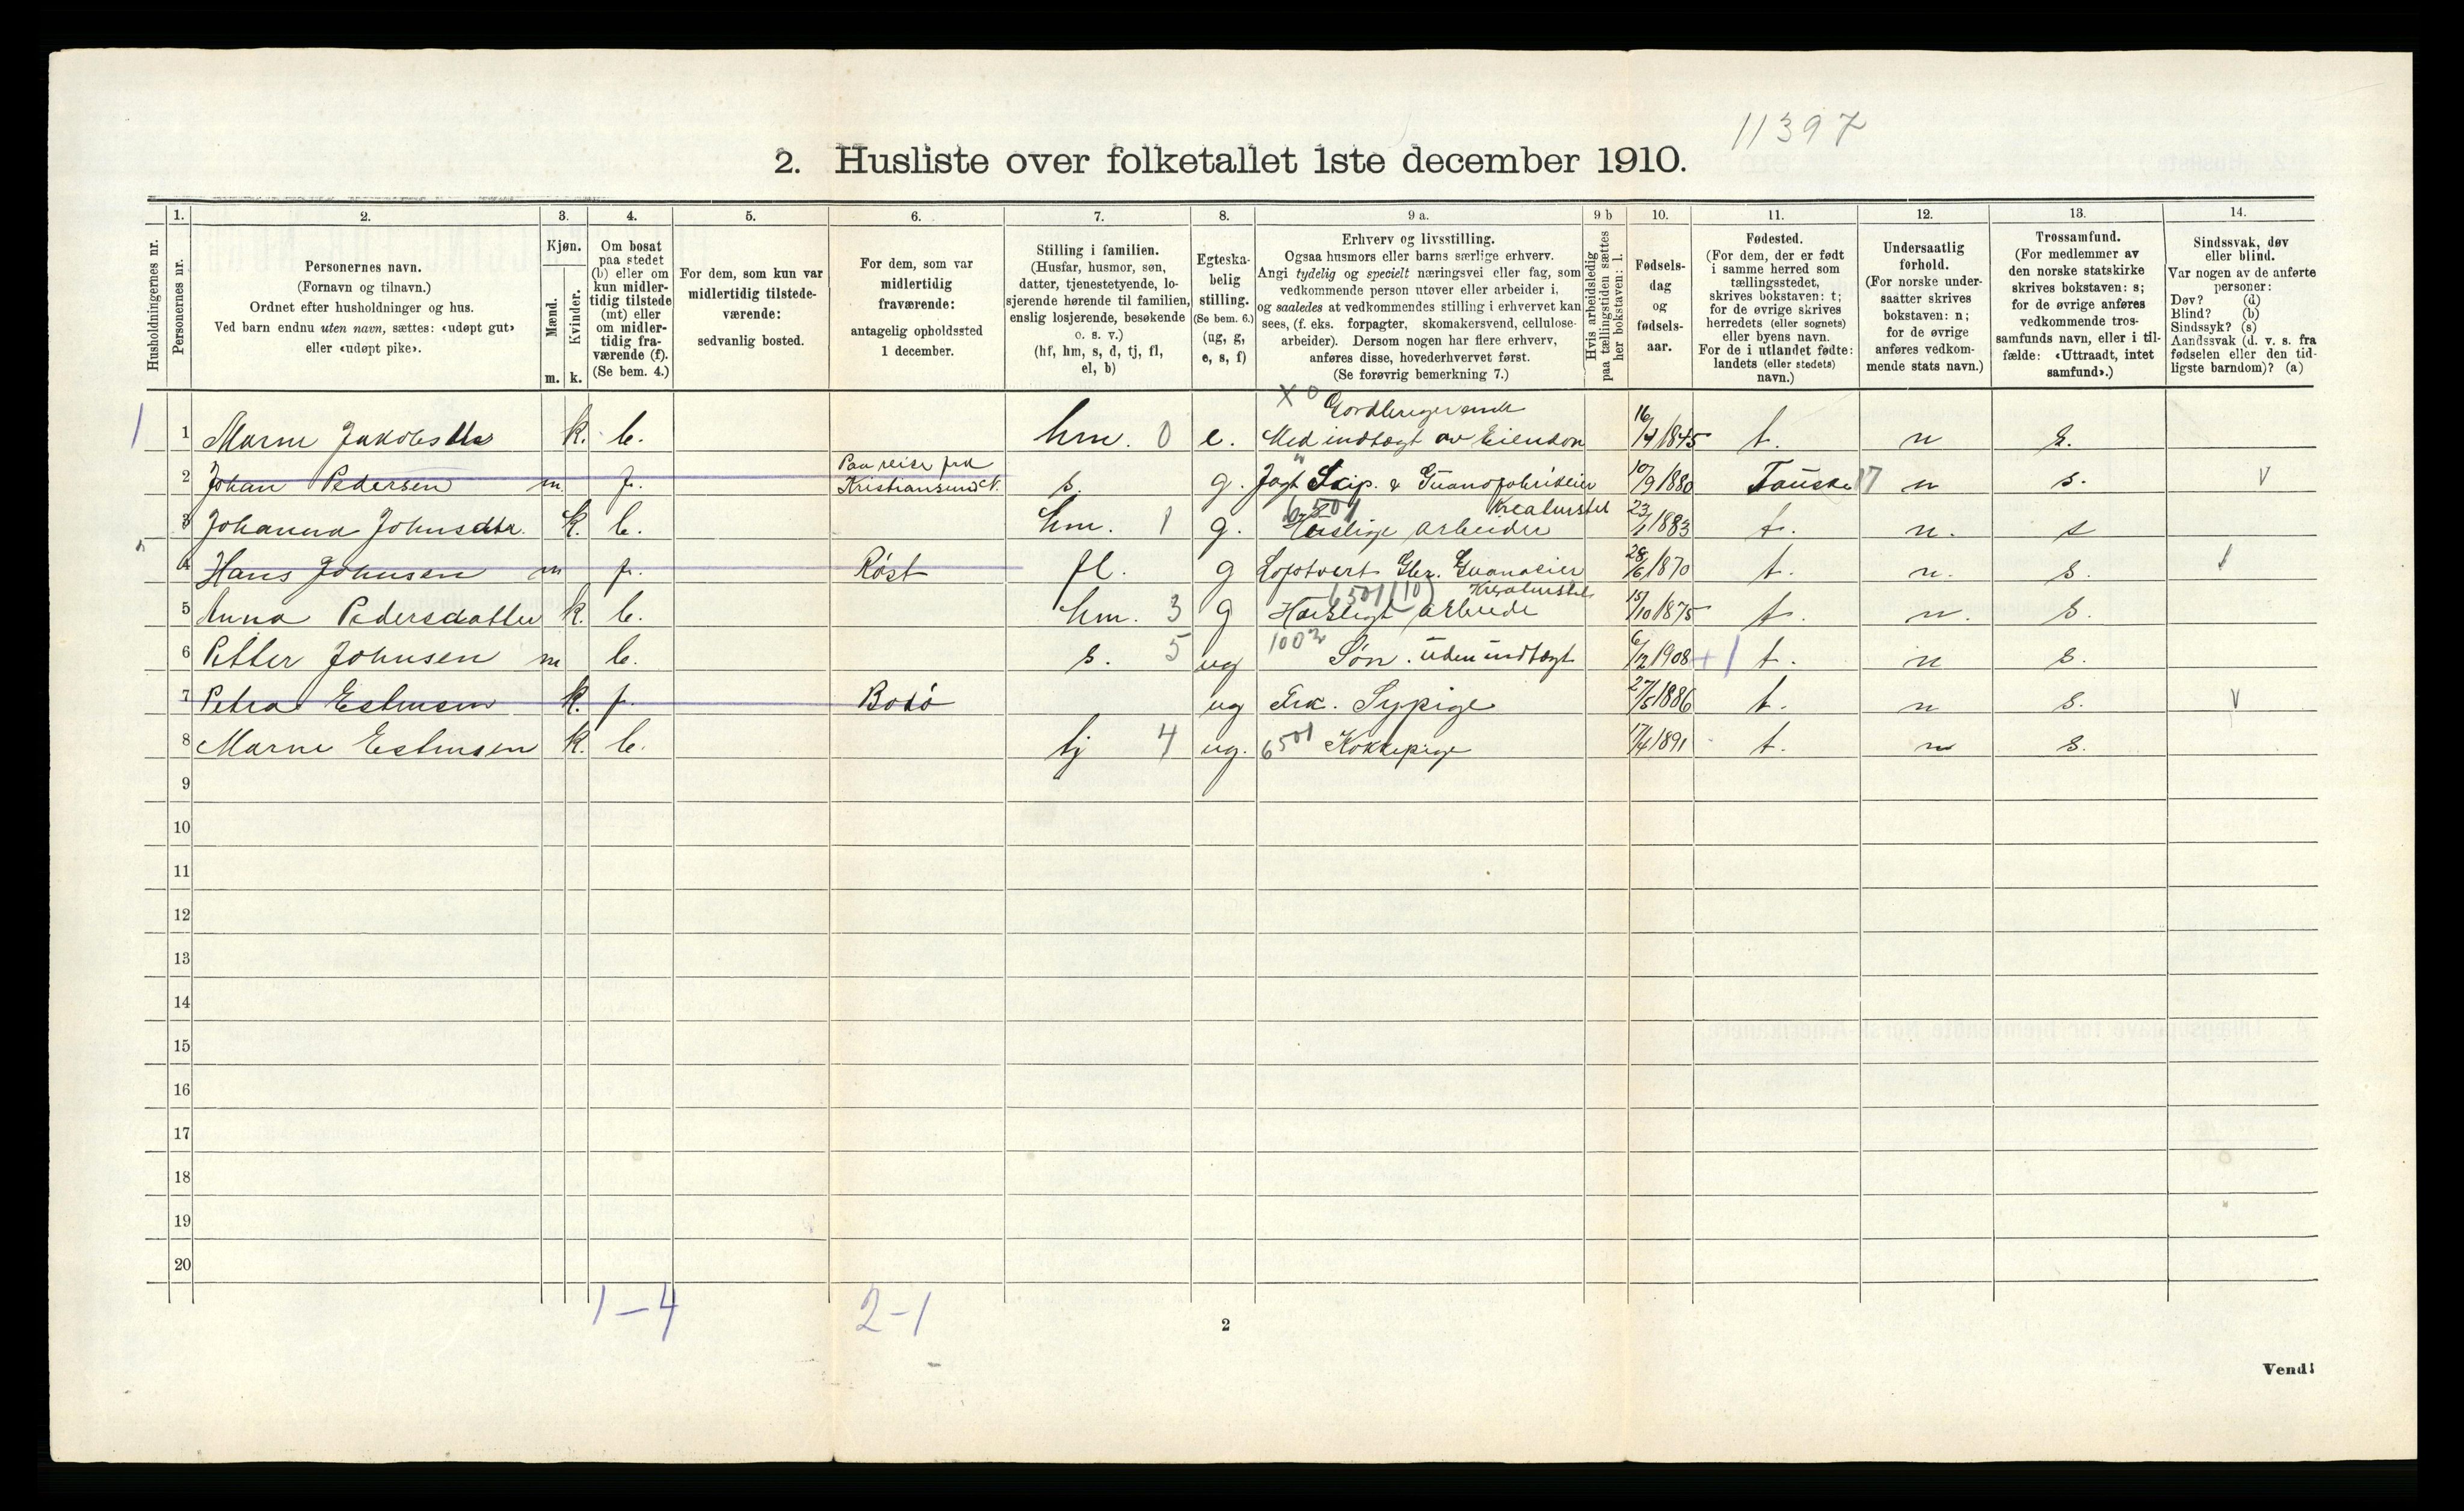 11397
2. Husliste over folketallet 1ste december 1910.
Husholdningernes nr.
1.
Personernes nr.
2.
Personernes navn.
(Fornavn og tilnavn.)
Ordnet efter husholdninger og hus.
Ved barn endnu uten navn, sættes: «udøpt gut»
eller «udøpt pike».
3.
Kjøn.
Mænd.
Kvinder.
m. k.
4.
Om bosat
paa stedet
(b) eller om
kun midler-
tidig tilstede
(mt) eller
om midler-
tidig fra-
værende (f).
(Se bem. 4.)
5.
For dem, som kun var
midlertidig tilstede-
værende:
sedvanlig bosted.
6.
For dem, som var
midlertidig
fraværende:
antagelig opholdssted
1 december.
7.
Stilling i familien.
(Husfar, husmor, søn,
datter, tjenestetyende, lo-
sjerende hørende til familien,
enslig losjerende, besøkende
o. s. v.)
(hf, hm, s, d, tj, fl,
el, b)
8.
Egteska-
belig
stilling.
(Se bem. 6.)
(ug, g,
e, s, f)
9 a.
Erhverv og livsstilling.
Ogsaa husmors eller barns særlige erhverv.
Angi tydelig og specielt næringsvei eller fag, som
vedkommende person utøver eller arbeider i,
og saaledes at vedkommendes stilling i erhvervet kan
sees, (f. eks. forpagter, skomakersvend, cellulose-
arbeider). Dersom nogen har flere erhverv,
anføres disse, hovederhvervet først.
(Se forøvrig bemerkning 7.)
9 b
Hvis arbeidsledig
paa tællingstiden sættes
her bokstaven: l.
10.
Fødsels-
dag
og
fødsels-
aar.
11.
Fødested.
(For dem, der er født
i samme herred som
tællingsstedet,
skrives bokstaven: t;
for de øvrige skrives
herredets (eller sognets)
eller byens navn.
For de i utlandet fødte:
landets (eller stedets)
navn.)
12.
Undersaatlig
forhold.
(For norske under-
saatter skrives
bokstaven: n;
for de øvrige
anføres vedkom-
mende stats navn.)
13.
Trossamfund.
(For medlemmer av
den norske statskirke
skrives bokstaven: s;
for de øvrige anføres
vedkommende tros-
samfunds navn, eller i til-
fælde: «Uttraadt, intet
samfund».)
14.
Sindssvak, døv
eller blind.
Var nogen av de anførte
personer:
Døv? (d)
Blind? (b)
Sindssyk? (s)
Aandssvak (d. v. s. fra
fødselen eller den tid-
ligste barndom)? (a)
X 0
1 1 k. b. hm. 0 e. Med indtægt av Eiendom 16/7 1845 t. n s.
Paa reise fra
2 Johan Pedersen m. f. Kristiansund N. s. g. Jagt Skip. & 10/9 1880 Fauske 17 n s. V
6501 Kreaturstel
3 Johanna Johnsdtr. k. b. hm. 1 g. Huslige arbeider 23/1 1883 t. n. s
4 Hans Johnsen m f. Røst fl. g Guanoeier 28/6 1870 t. n. s.
6501 (10) Kreaturstel
5 Anna Pedersdatter k. b. hm. 3 g Husligt arbeide 15/10 1875 t. n. s.
6 Petter Johnsen m b. s. 5 ug 1002 Søn. uden indtægt 6/12 1908 +1 t. n s.
7 Petra Estensen k. f. Bodø ug Frk. Sypige 27/5 1886 t. n s. V
8 Marie Estensen k. b. tj 4 ug. 6501 Kokkepige 17/4 1891 t. n s.
9
10
11
12
13
14
15
16
17
18
19
20
1-4 2-1
2
Vend!